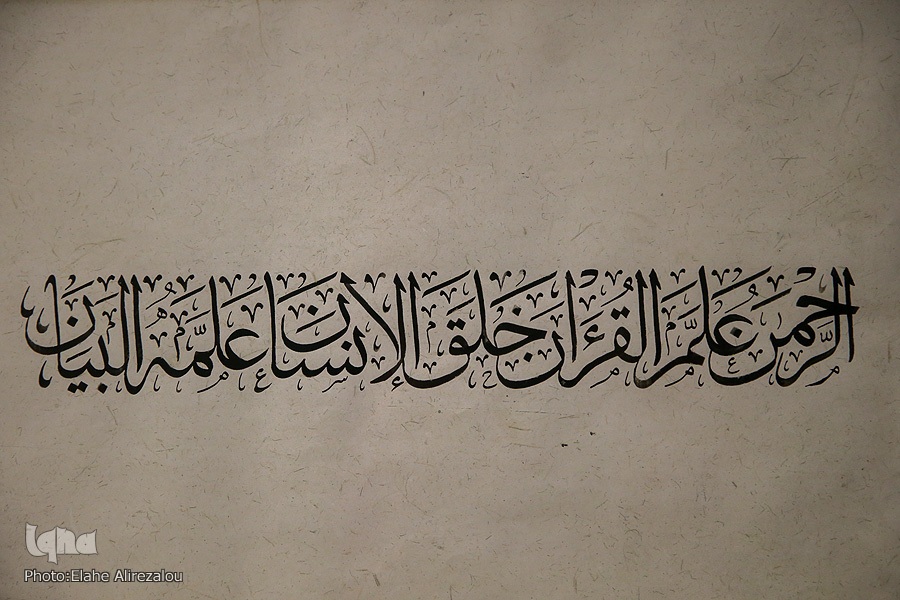 الرَّحْمٰنُ عَلَّمَ الْقُرْءَانَ خَلَقَ الْإِنْسَانَ عَلَّمَهُ الْبَيَانَ
iqna
Photo:Elahe Alirezalou